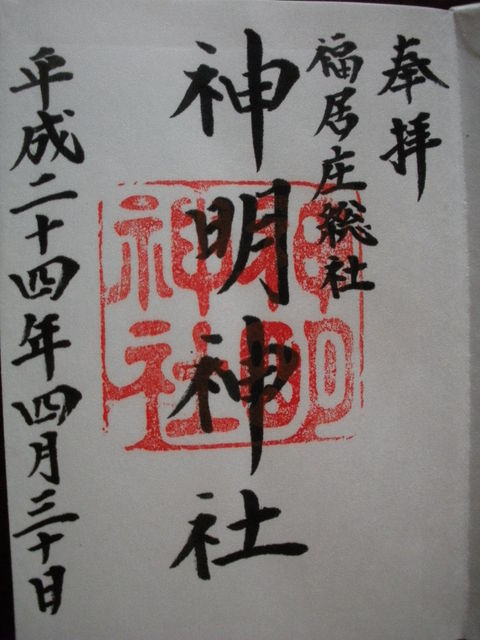 奉拝
福居庄総社
神明神社
神明
神社
平成二十四年四月三十日